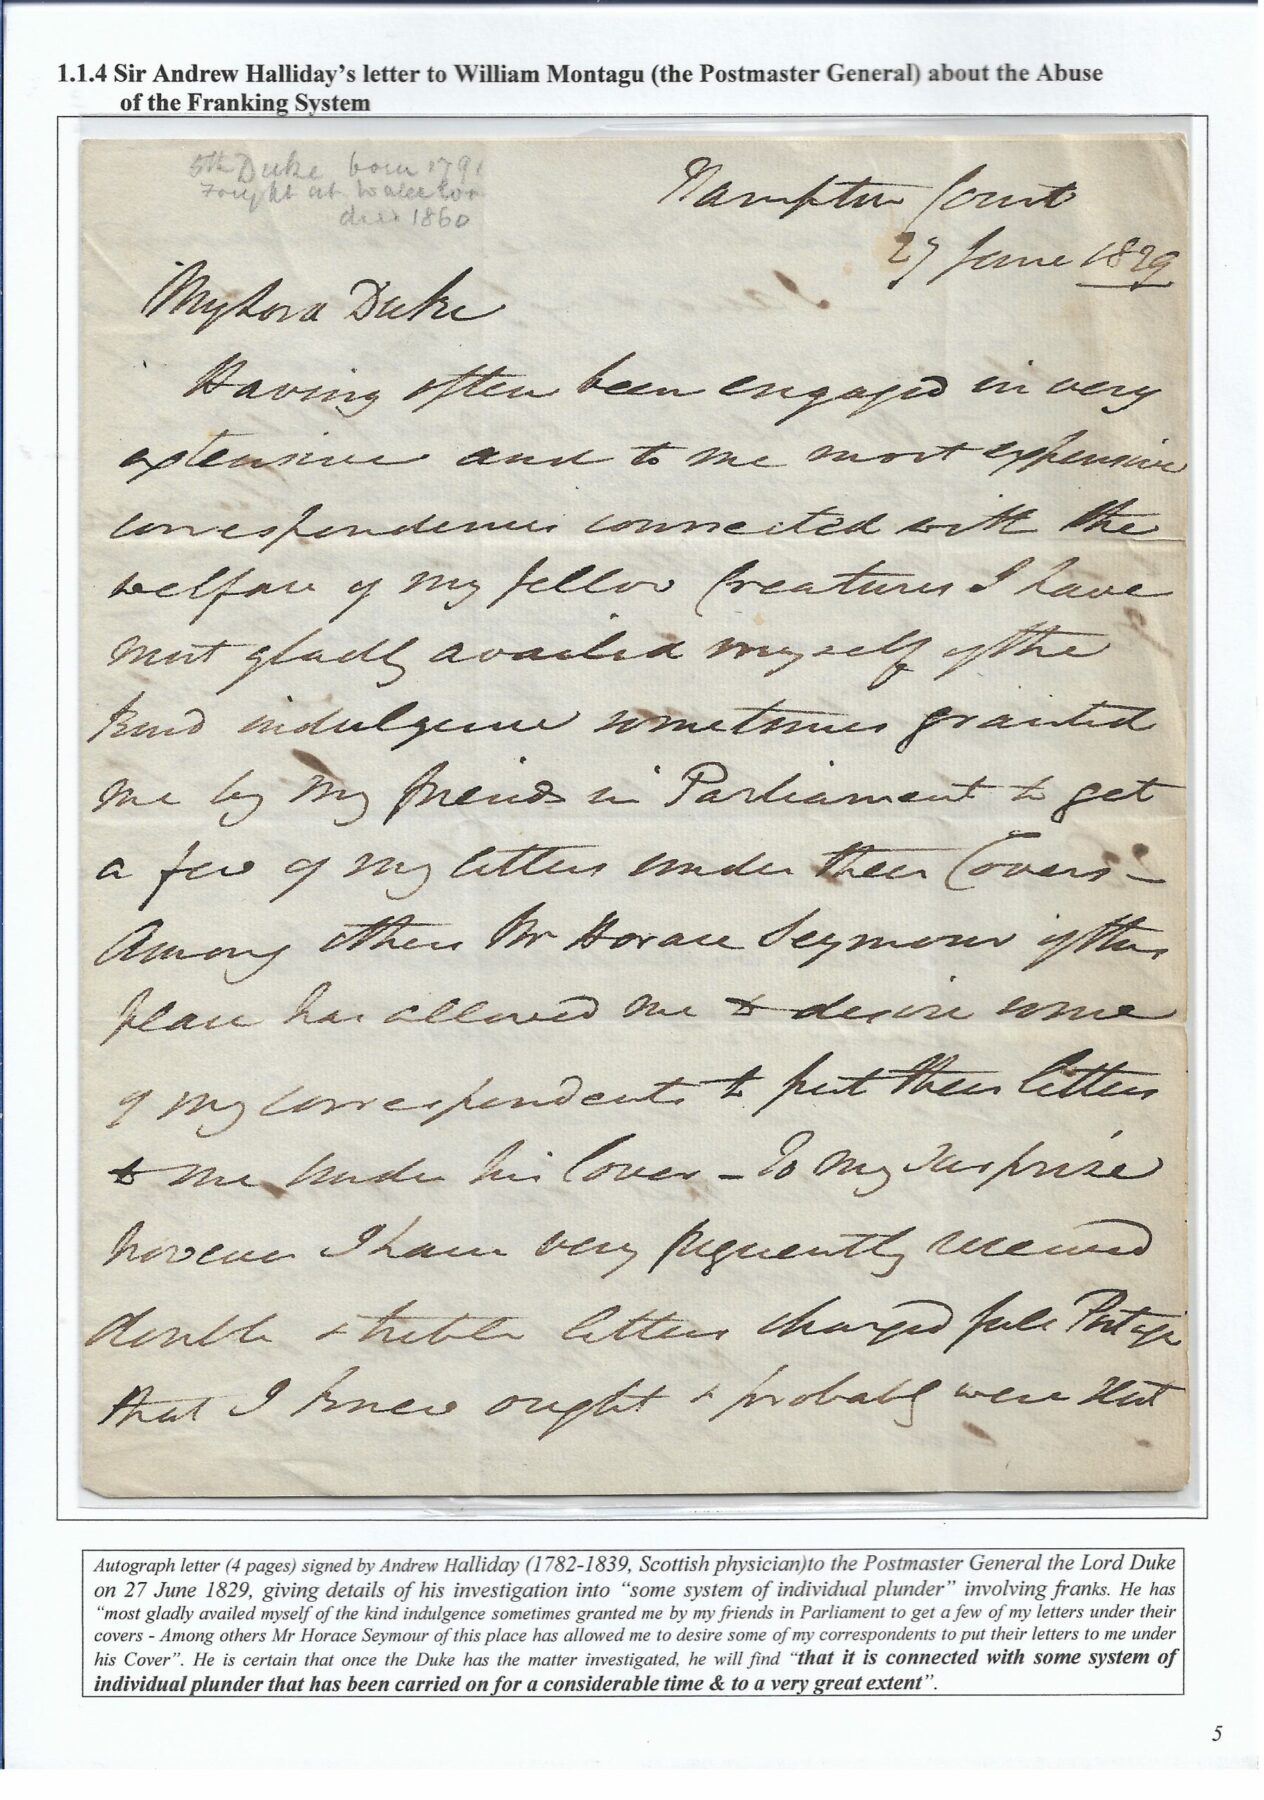 1.1.4 Sir Andrew Halliday’s letter to William Montagu (the Postmaster General) about the Abuse
of the Franking System
5th Duke born 1791
Fought at Waterloo
died 1860
Hampton Court
27 June 1829
My Lord Duke
Having often been engaged in very
extensive and to me most expensive
correspondences connected with the
welfare of my fellow Creatures I have
most gladly availed myself of the
kind indulgence sometimes granted
me by my friends in Parliament to get
a few of my letters under their Covers –
Among others Mr Horace Seymour of this
place has allowed me to desire some
of my correspondents to put their letters
to me under his Cover – To my surprize
however I have very frequently received
double & treble letters charged full Postage
that I knew ought & probably were sent
Autograph letter (4 pages) signed by Andrew Halliday (1782-1839, Scottish physician)to the Postmaster General the Lord Duke
on 27 June 1829, giving details of his investigation into “some system of individual plunder” involving franks. He has
“most gladly availed myself of the kind indulgence sometimes granted me by my friends in Parliament to get a few of my letters under their
covers - Among others Mr Horace Seymour of this place has allowed me to desire some of my correspondents to put their letters to me under
his Cover”. He is certain that once the Duke has the matter investigated, he will find “that it is connected with some system of
individual plunder that has been carried on for a considerable time & to a very great extent”.
5